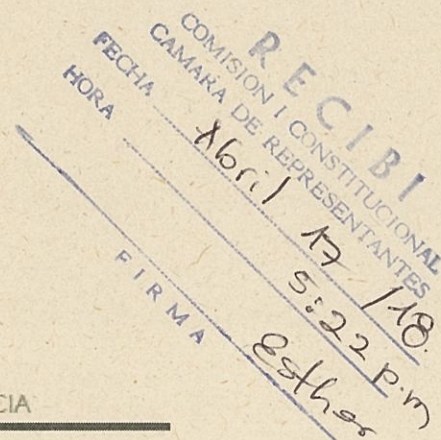 RECIBI
COMISION I CONSTITUCIONAL
CAMARA DE REPRESENTANTES
FECHA Abril 17 / 18.
HORA 5:22 p.m
Esther
FIRMA
CIA